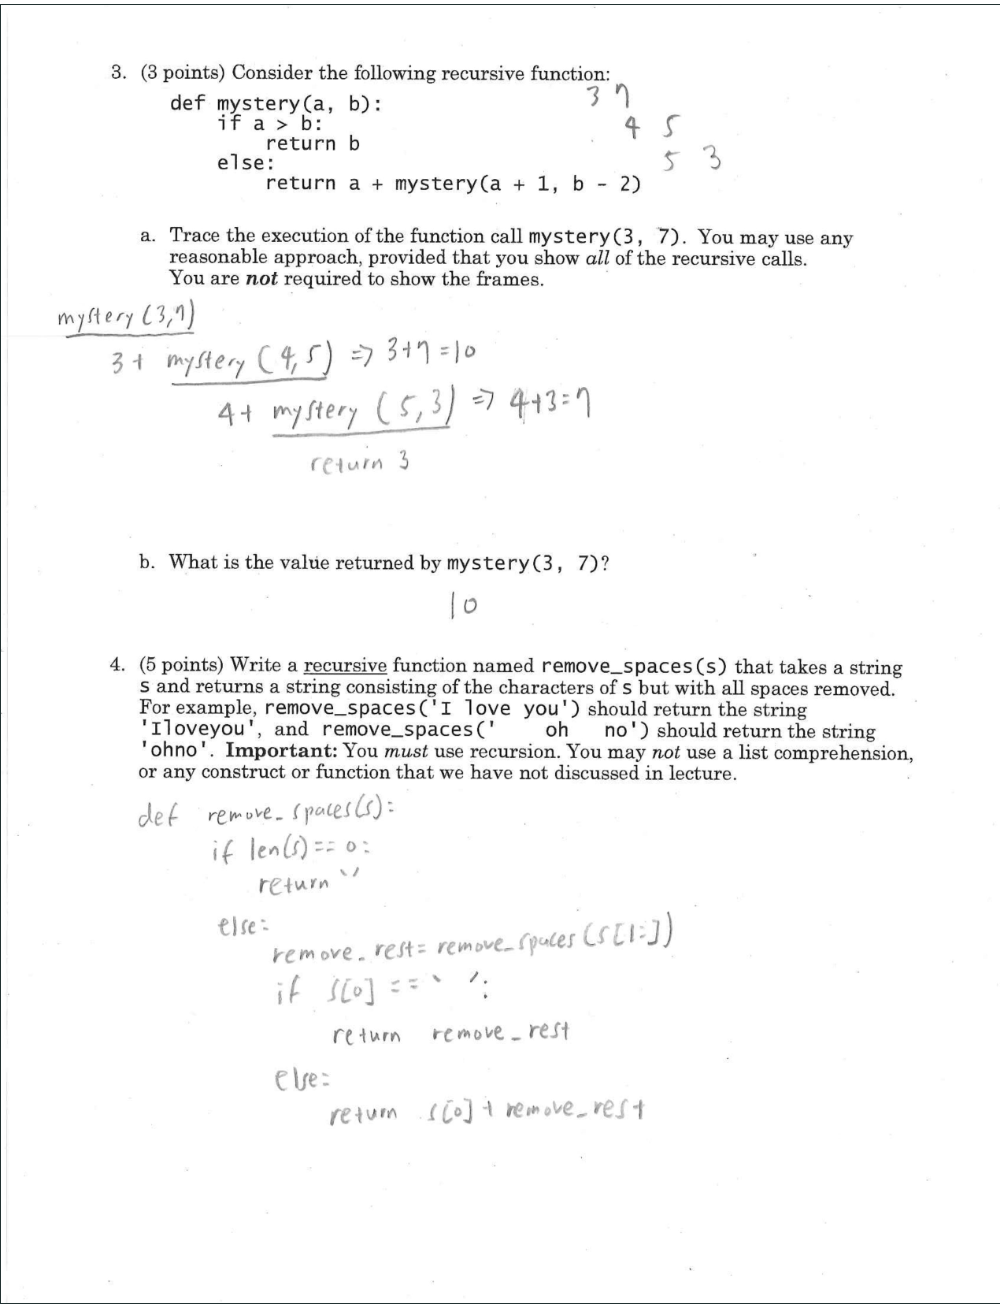 3. (3 points) Consider the following recursive function:
def mystery(a, b):
if a > b:
return b
else:
return a + mystery(a + 1, b - 2)
3 7
4 5
5 3
a. Trace the execution of the function call mystery(3, 7). You may use any
reasonable approach, provided that you show all of the recursive calls.
You are not required to show the frames.
mystery(3,7)
3 + mystery(4,5) => 3+7=10
4+ mystery (5,3) => 4+3=7
return 3
b. What is the value returned by mystery(3, 7)?
10
4. (5 points) Write a recursive function named remove_spaces(s) that takes a string
s and returns a string consisting of the characters of s but with all spaces removed.
For example, remove_spaces('I love you') should return the string
'Iloveyou', and remove_spaces('    oh   no') should return the string
'ohno'. Important: You must use recursion. You may not use a list comprehension,
or any construct or function that we have not discussed in lecture.
def remove_spaces(s):
if len(s) == 0:
return ''
else:
remove_rest = remove_spaces(s[1:])
if s[0] == ' ':
return remove_rest
else:
return s[0] + remove_rest